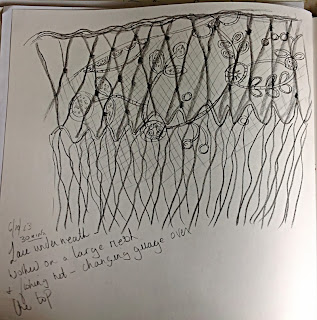 30 mins
Lace underneath -
worked on a large mesh
& fishing net - changing guage over
the top